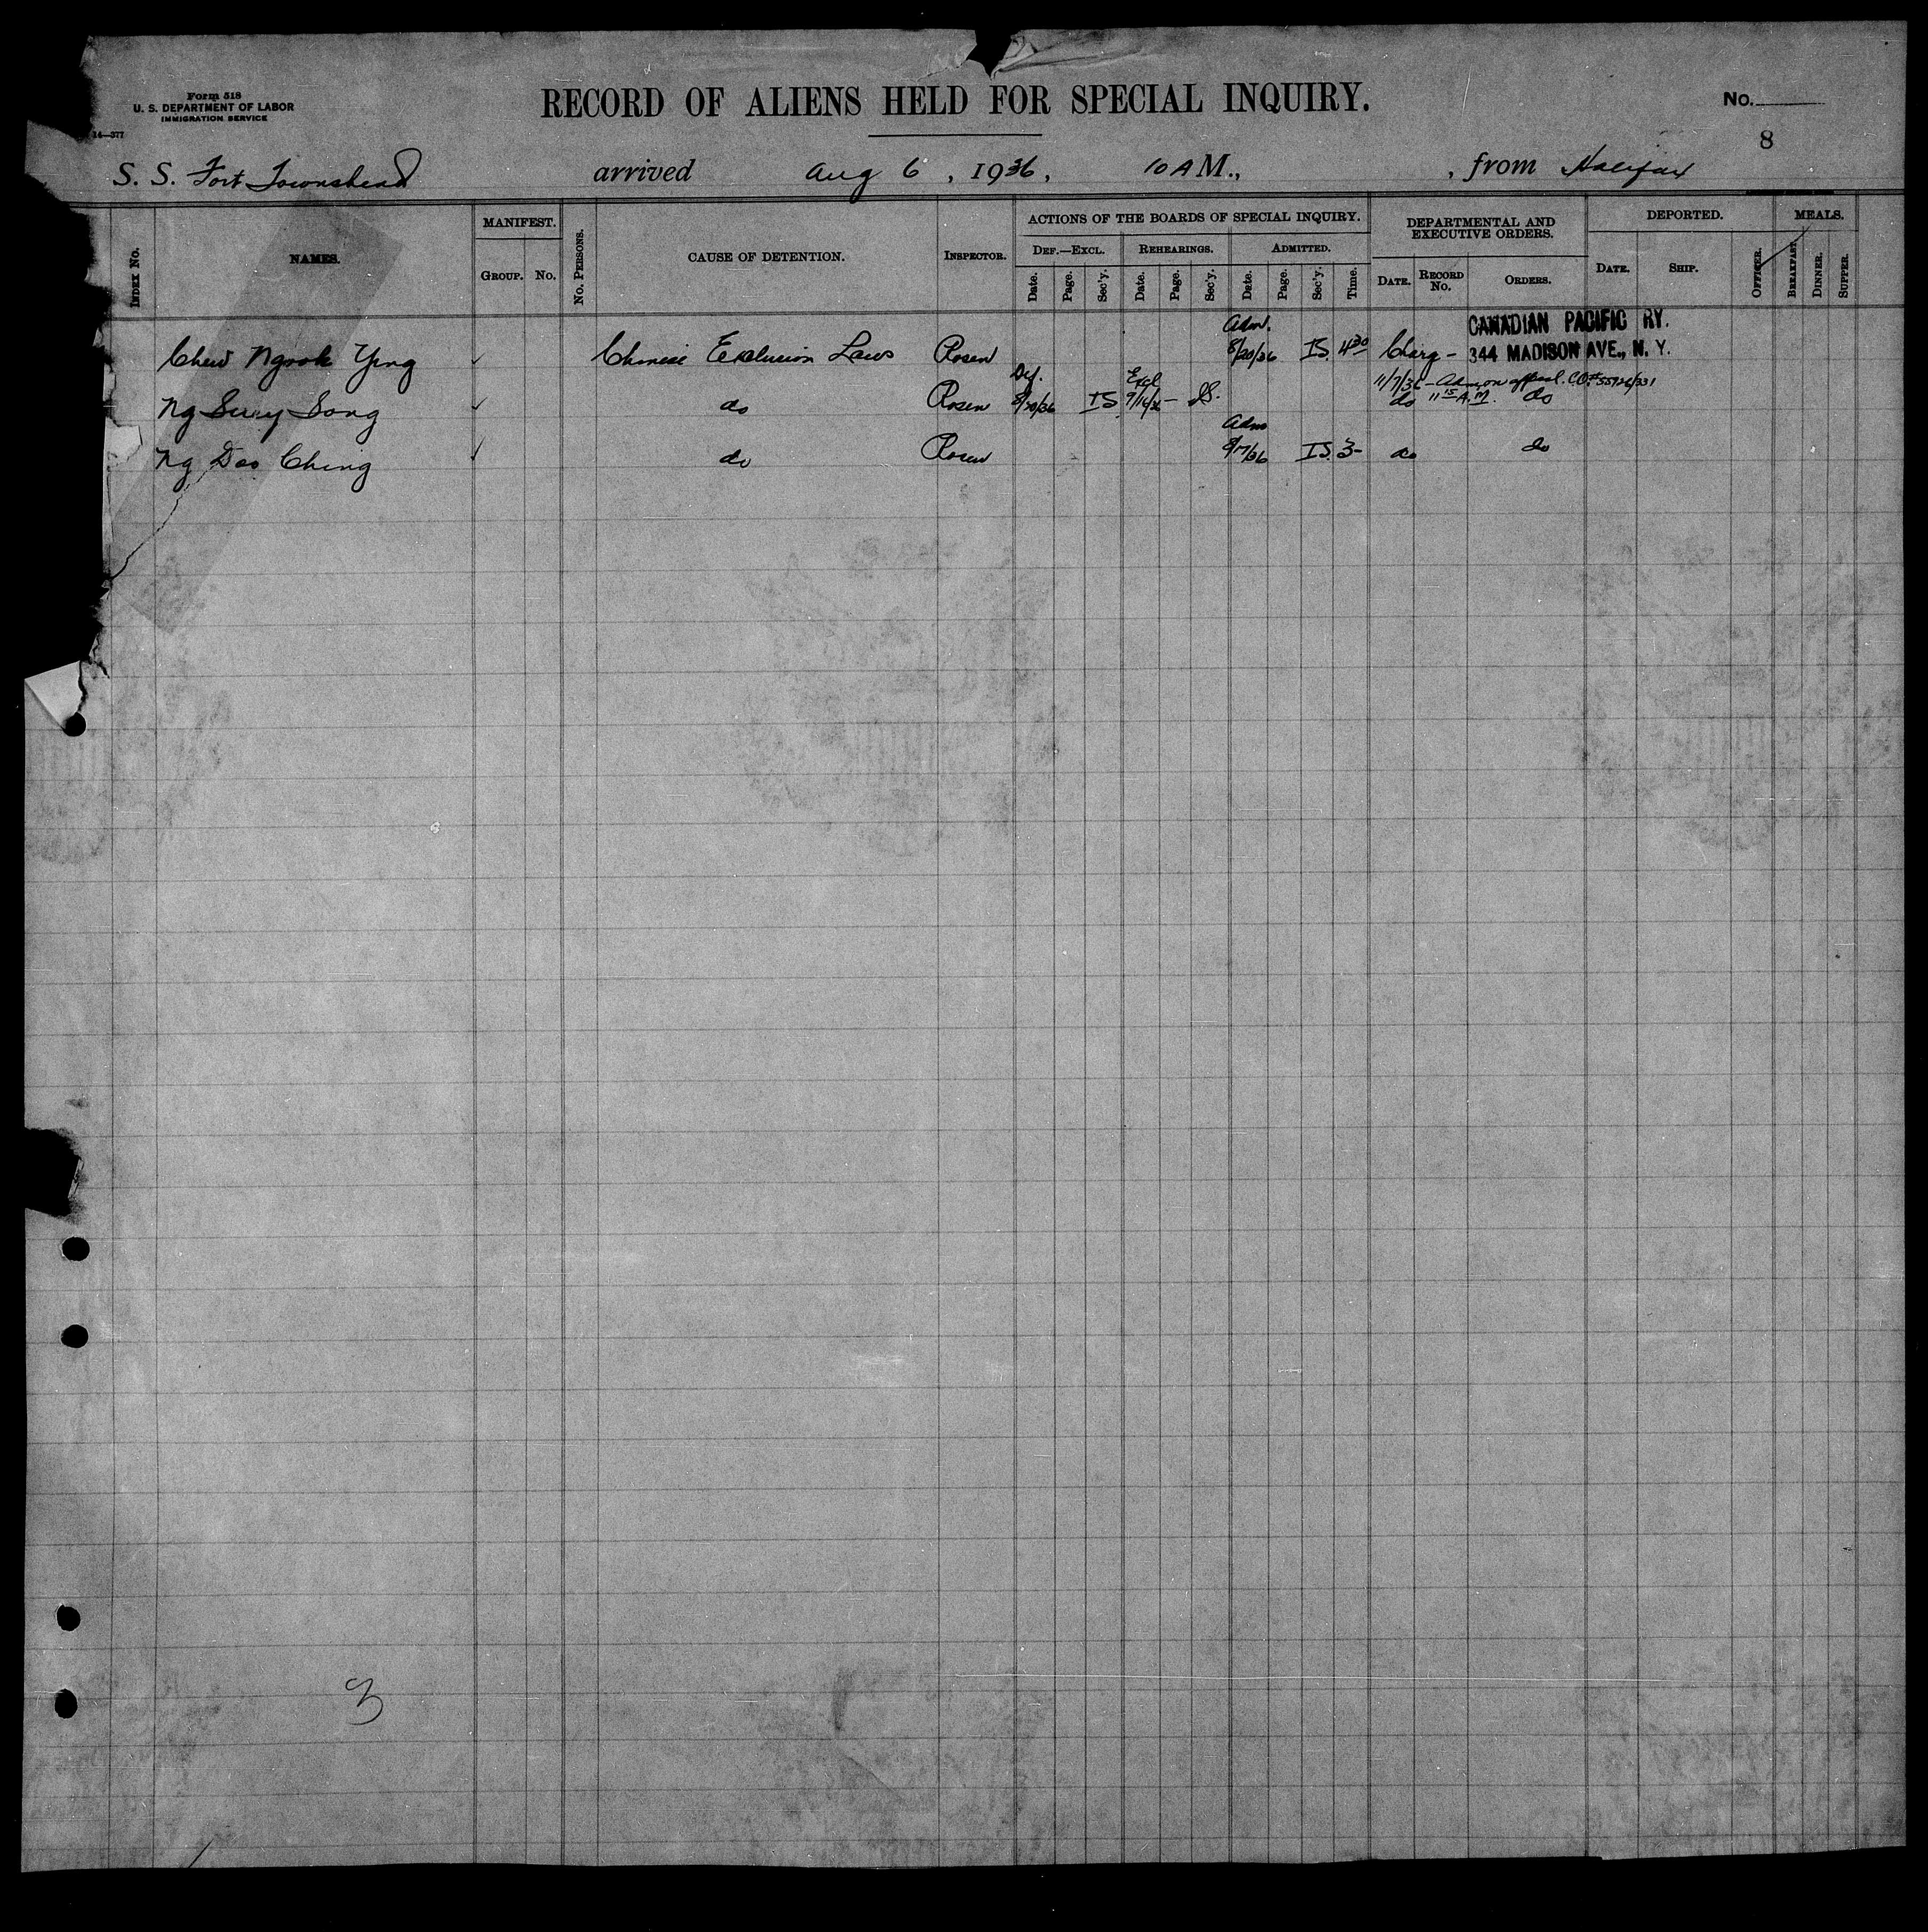 Form 518
U. S. DEPARTMENT OF LABOR
IMMIGRATION SERVICE
14—377
RECORD OF ALIENS HELD FOR SPECIAL INQUIRY.
No.
8
S. S. Fort Townshend arrived Aug 6, 1936, 10 A M., , from Halifax
INDEX No.
NAMES.
MANIFEST.
GROUP. No.
No. PERSONS.
CAUSE OF DETENTION.
INSPECTOR.
ACTIONS OF THE BOARDS OF SPECIAL INQUIRY.
DEF.—EXCL. REHEARINGS. ADMITTED.
Date. Page. Sec'y. Date. Page. Sec'y. Date. Page. Sec'y. Time.
DEPARTMENTAL AND
EXECUTIVE ORDERS.
DATE. RECORD No. ORDERS.
DEPORTED.
DATE. SHIP.
OFFICER.
MEALS.
BREAKFAST. DINNER. SUPPER.
Adm. CANADIAN PACIFIC RY.
Chew Ngook Ying Chinese Exclusion Laws Rosen 8/20/36 IS 4 30 Charg - 344 MADISON AVE., N. Y.
Def. Excl 11/7/36 - Adm on appeal. CO# 55926/331
Ng Suey Song do Rosen 8/20/36 IS 9/14/36 - IS. do 11 15 A.M. do
Adm
Ng Doo Ching do Rosen 8/17/36 IS 3- do do
3